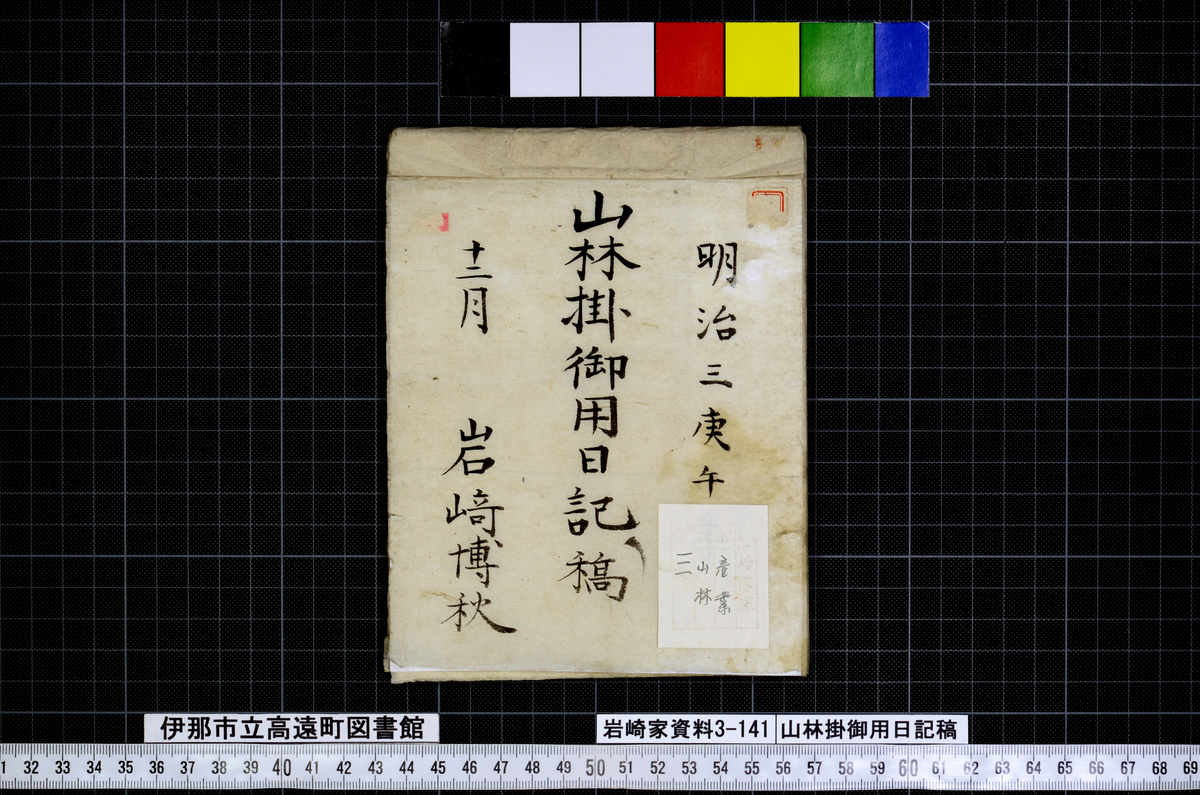 明治三庚午
山林掛御用日記稿
十二月 岩﨑博秋
産業
山林
三
伊那市立高遠町図書館
岩崎家資料3-141
山林掛御用日記稿
1 32 33 34 35 36 37 38 39 40 41 42 43 44 45 46 47 48 49 50 51 52 53 54 55 56 57 58 59 60 61 62 63 64 65 66 67 68 69